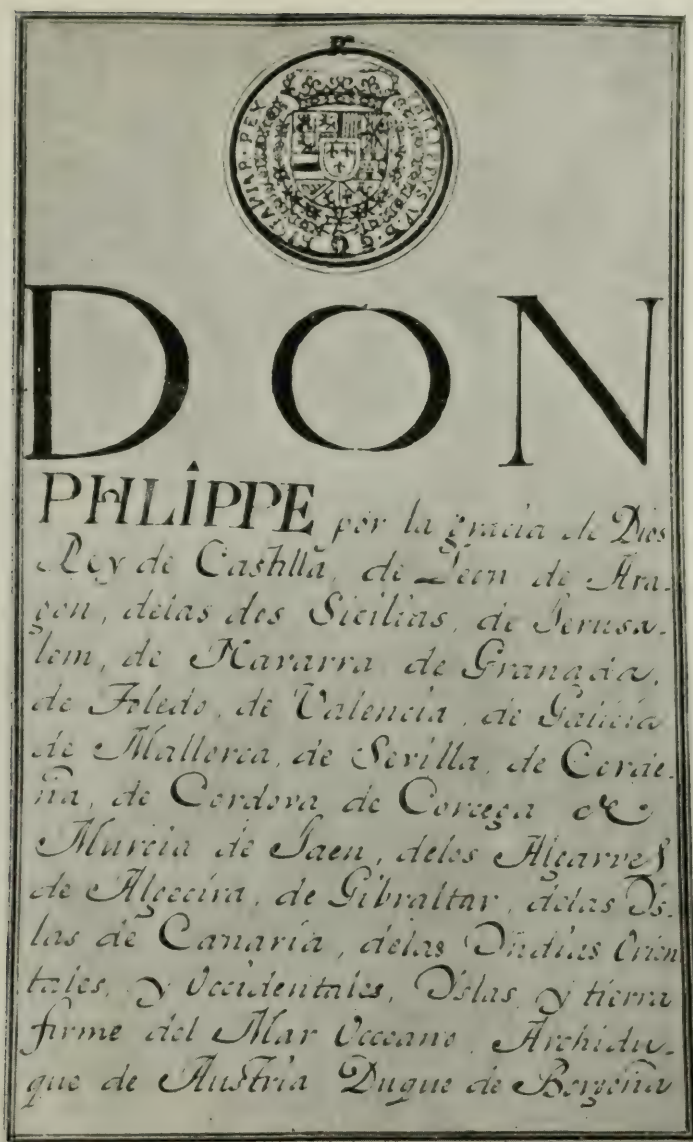 PHILIPPVS V D G HISPANIAR REX
DON
PHLIPPE por la gracia de Dios
Rey de Castilla, de Leon de Ara-
gon, delas dos Sicilias, de Jerusa-
lem, de Navarra de Granada,
de Toledo, de Valencia, de Galicia
de Mallorca, de Sevilla, de Cerde-
ña, de Cordova de Corcega de
Murcia de Jaen, delos Algarves
de Algecira, de Gibraltar, delas Ys-
las de Canaria, delas Yndias Orien
tales, y Occidentales, Yslas, y tierra
firme del Mar Occeano Archidu-
que de Austria Duque de Borgoña